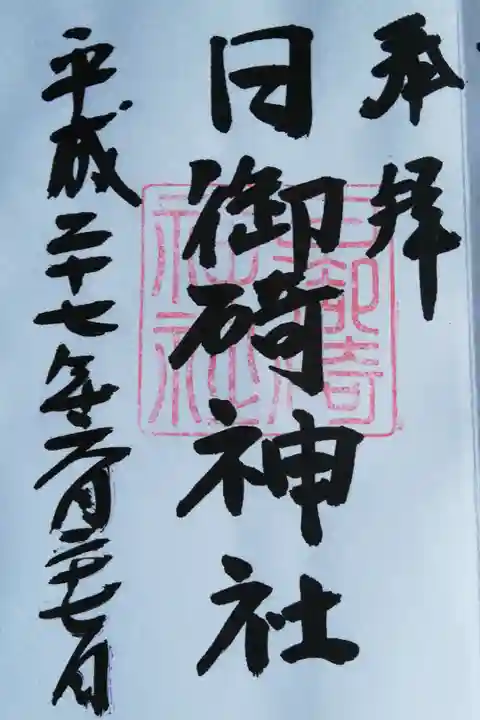 奉拝
日御碕神社
平成二十七年六月二十七日
日御碕神社